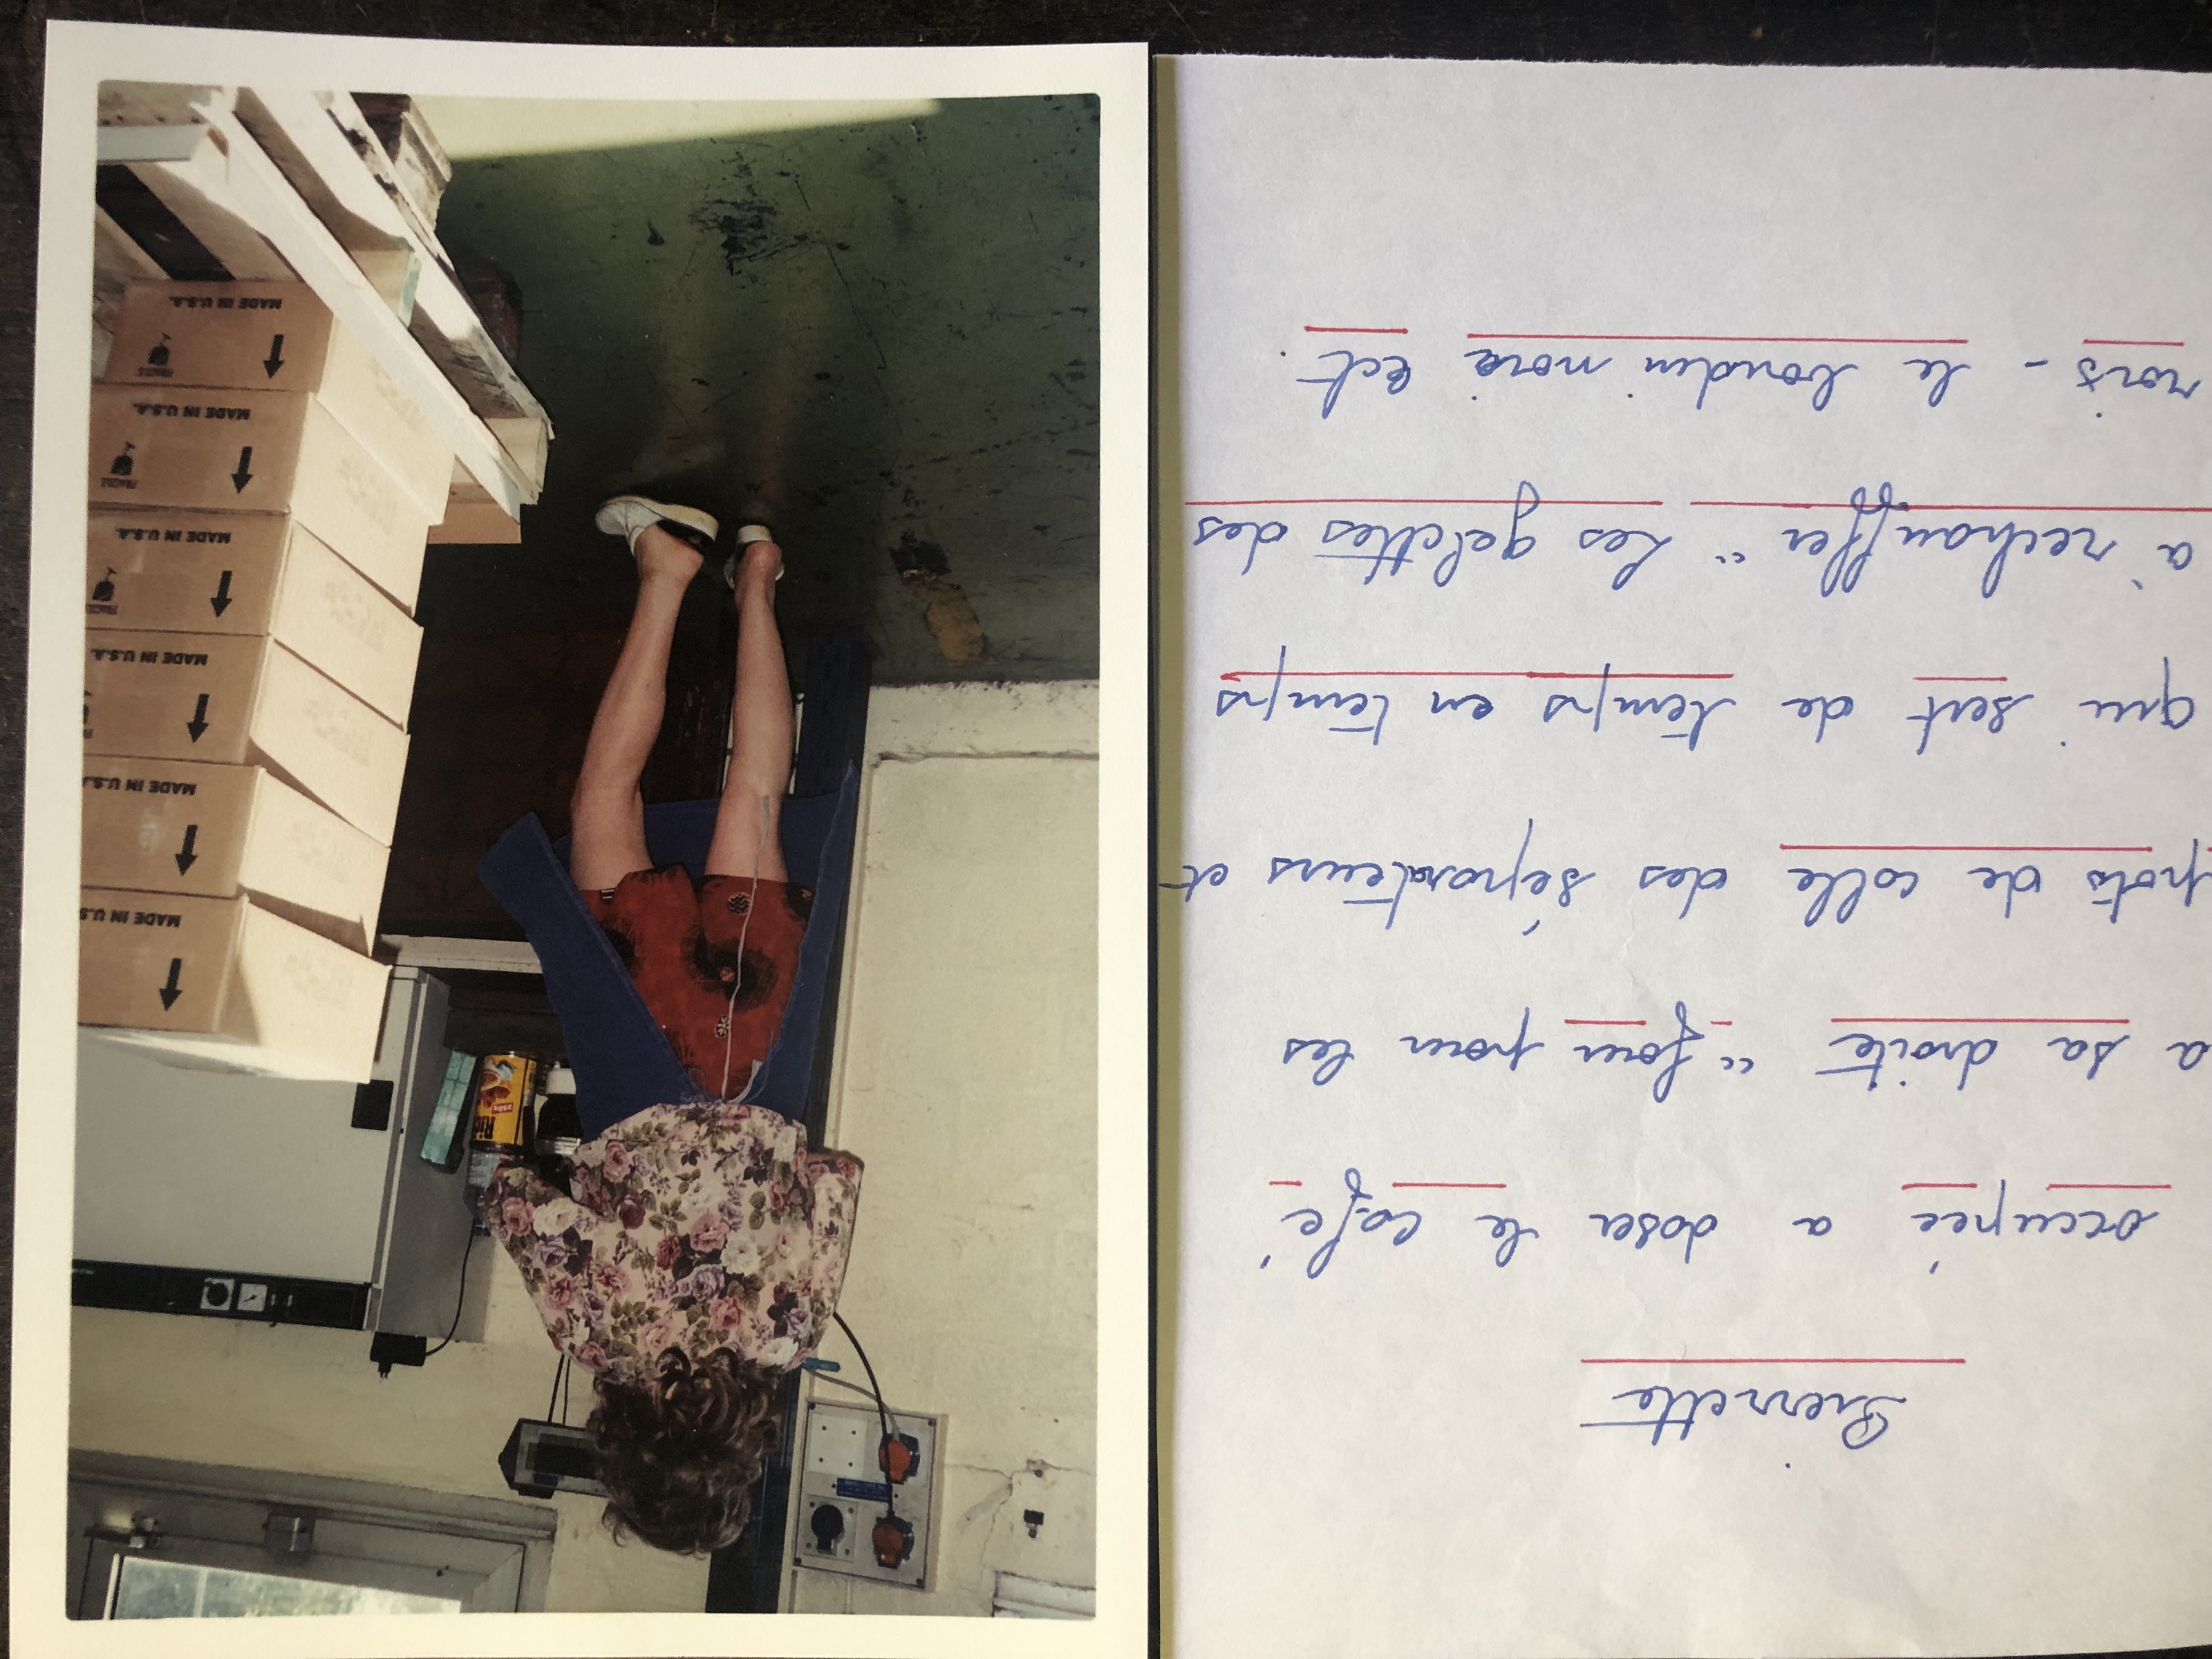 Pierrette
occupée a doser le café
a sa droite " four pour les
pots de colle des séparateurs et
qui sert de temps en temps
à rechauffer " Les galettes des
rois - le boudin noir ect.
250g
MADE IN U.S
MADE IN U.S.A
MADE IN U.S.A.
FRAGILE
MADE IN U.S.A.
FRAGILE
MADE IN U.S.A.
FRAGILE
MADE IN U.S.A.